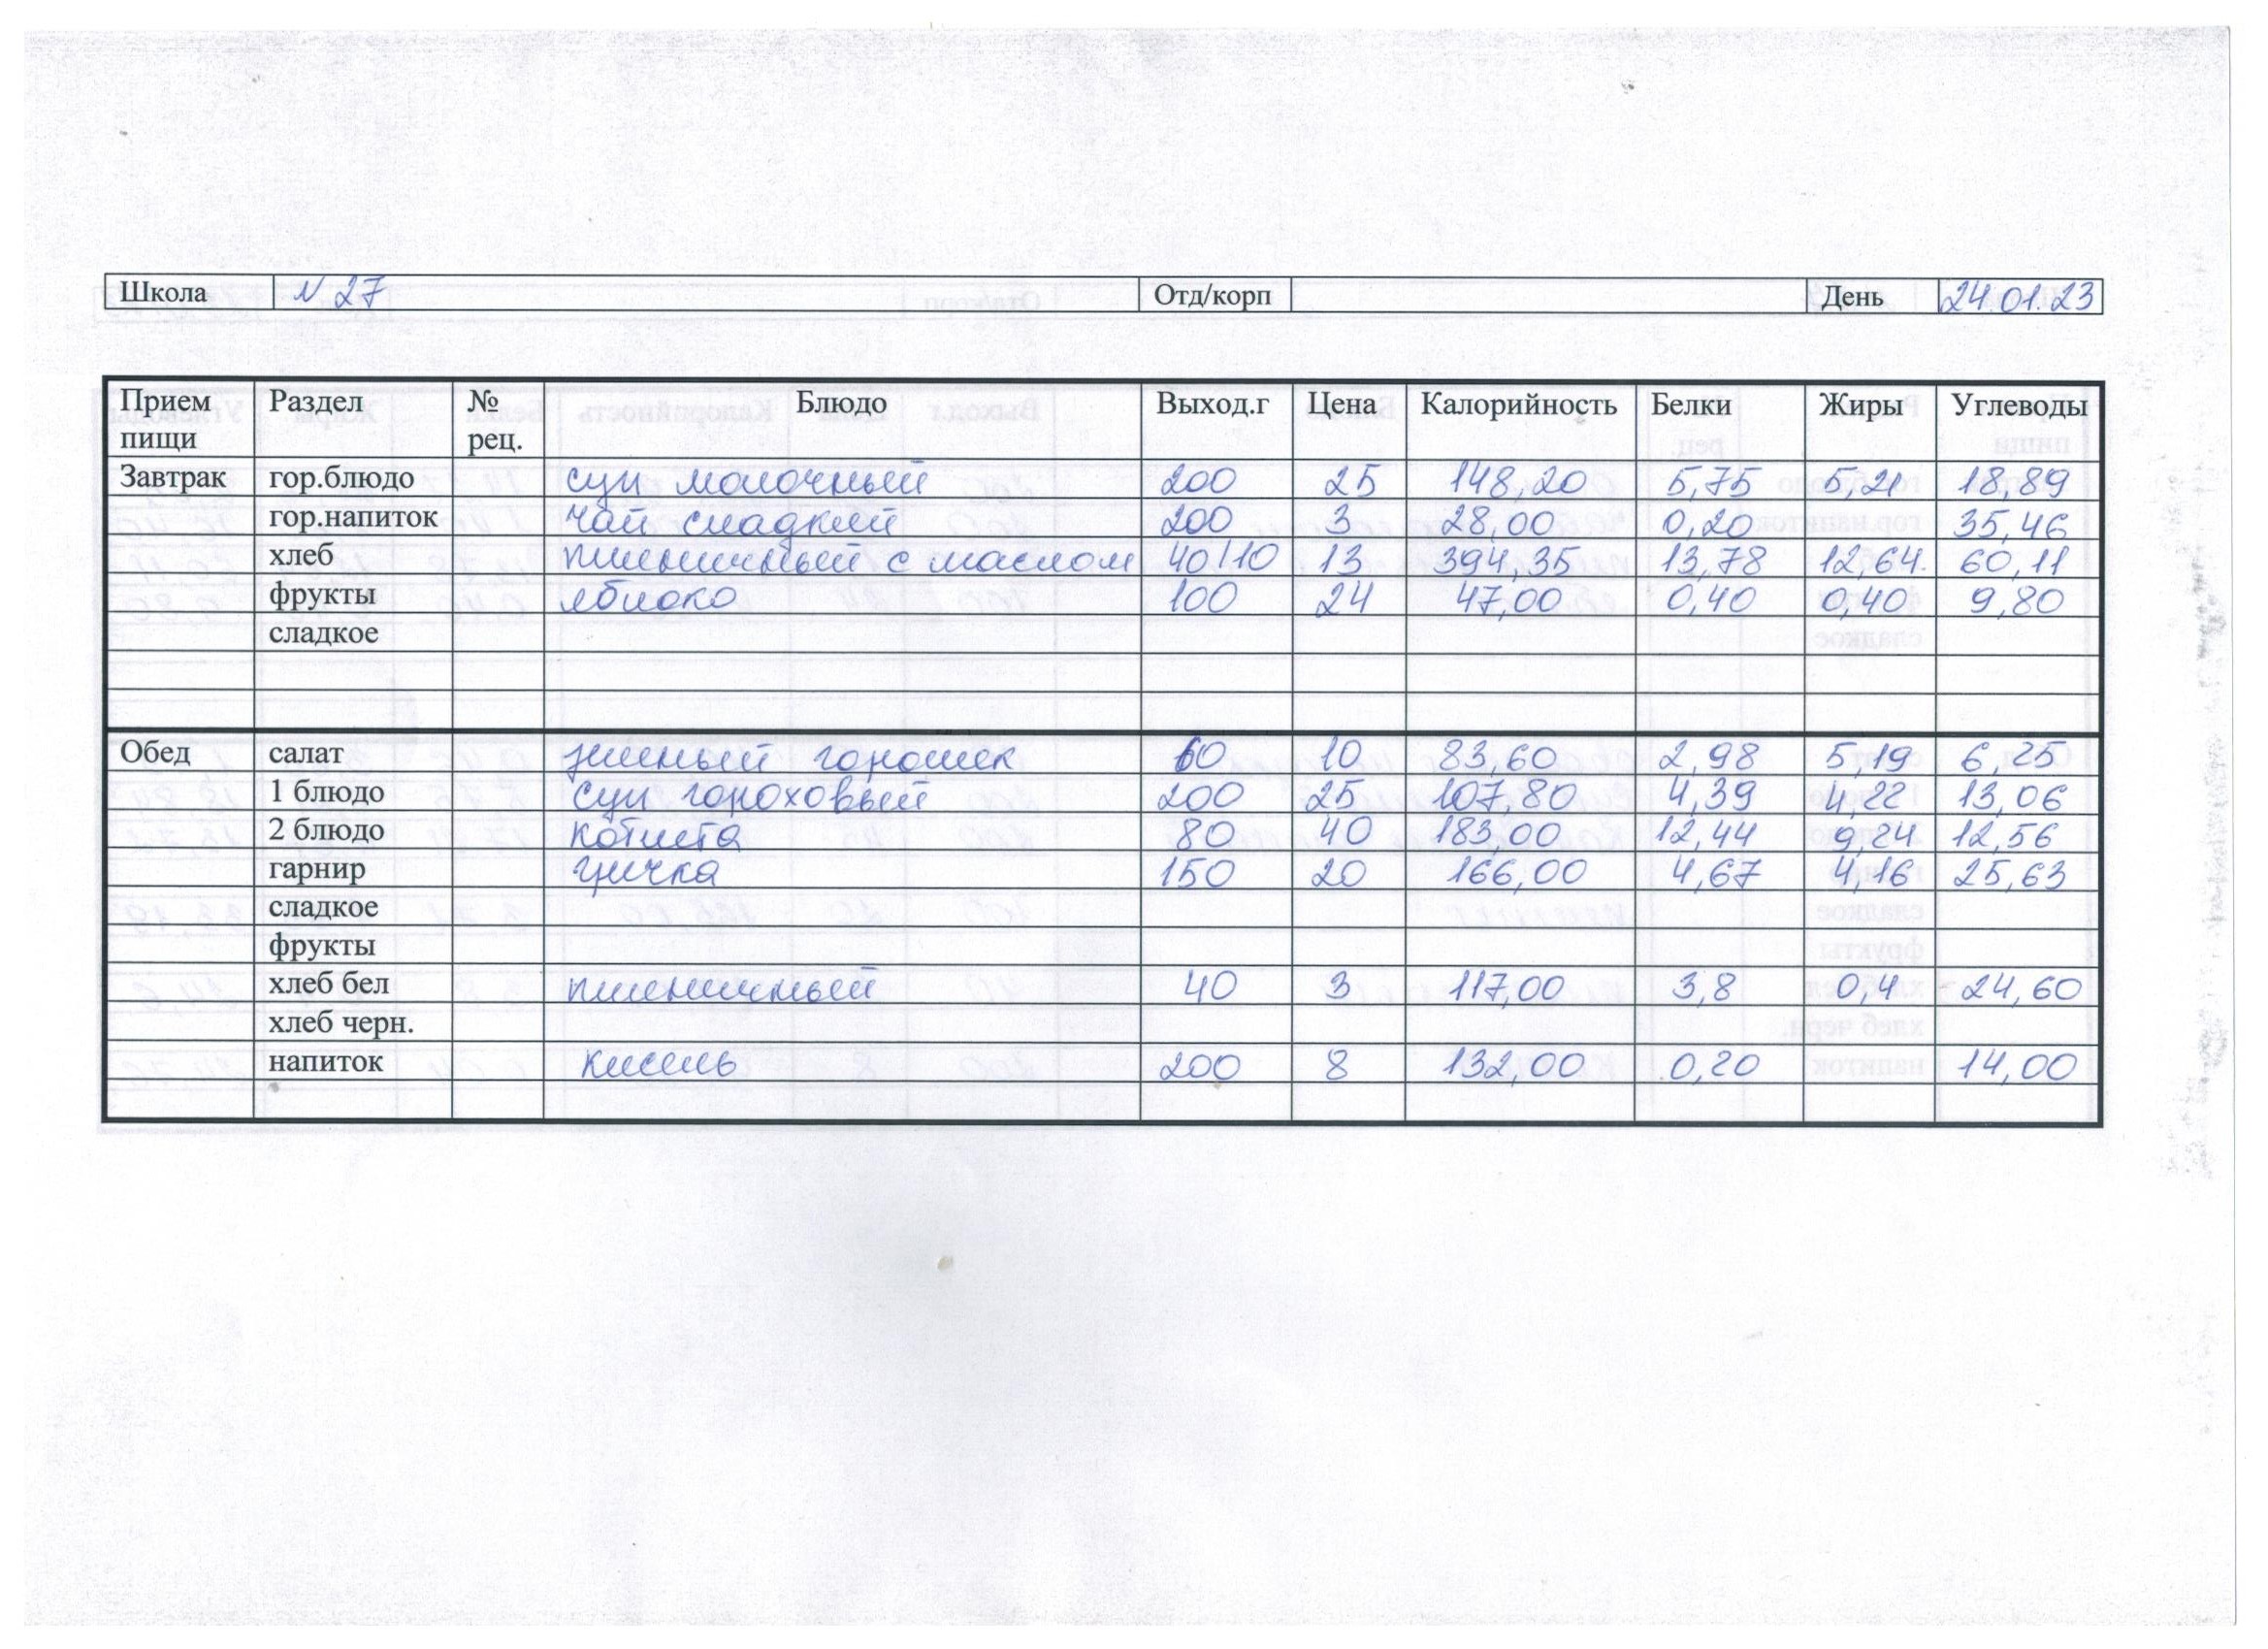 Школа N 27 Отд/корп День 24.01.23
Прием пищи Раздел № рец. Блюдо Выход.г Цена Калорийность Белки Жиры Углеводы
Завтрак гор.блюдо суп молочный 200 25 148,20 5,75 5,21 18,89
гор.напиток чай сладкий 200 3 28,00 0,20 35,46
хлеб пшеничный с маслом 40/10 13 394,35 13,78 12,64 60,11
фрукты яблоко 100 24 47,00 0,40 0,40 9,80
сладкое
Обед салат зеленый горошек 60 10 83,60 2,98 5,19 6,25
1 блюдо суп гороховый 200 25 107,80 4,39 4,22 13,06
2 блюдо котлета 80 40 183,00 12,44 9,24 12,56
гарнир гречка 150 20 166,00 4,67 4,16 25,63
сладкое
фрукты
хлеб бел пшеничный 40 3 117,00 3,8 0,4 24,60
хлеб черн.
напиток кисель 200 8 132,00 0,20 14,00